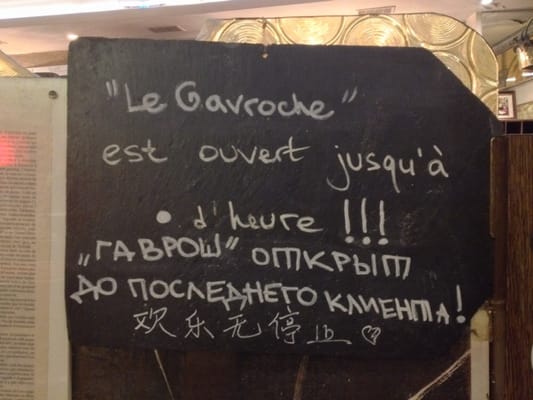 "Le Gavroche"
est ouvert jusqu'à
• d'heure !!!
„ГАВРОШ” ОТКРЫТ
ДО ПОСЛЕДНЕГО КЛИЕНТА!
欢乐无停止 ♡